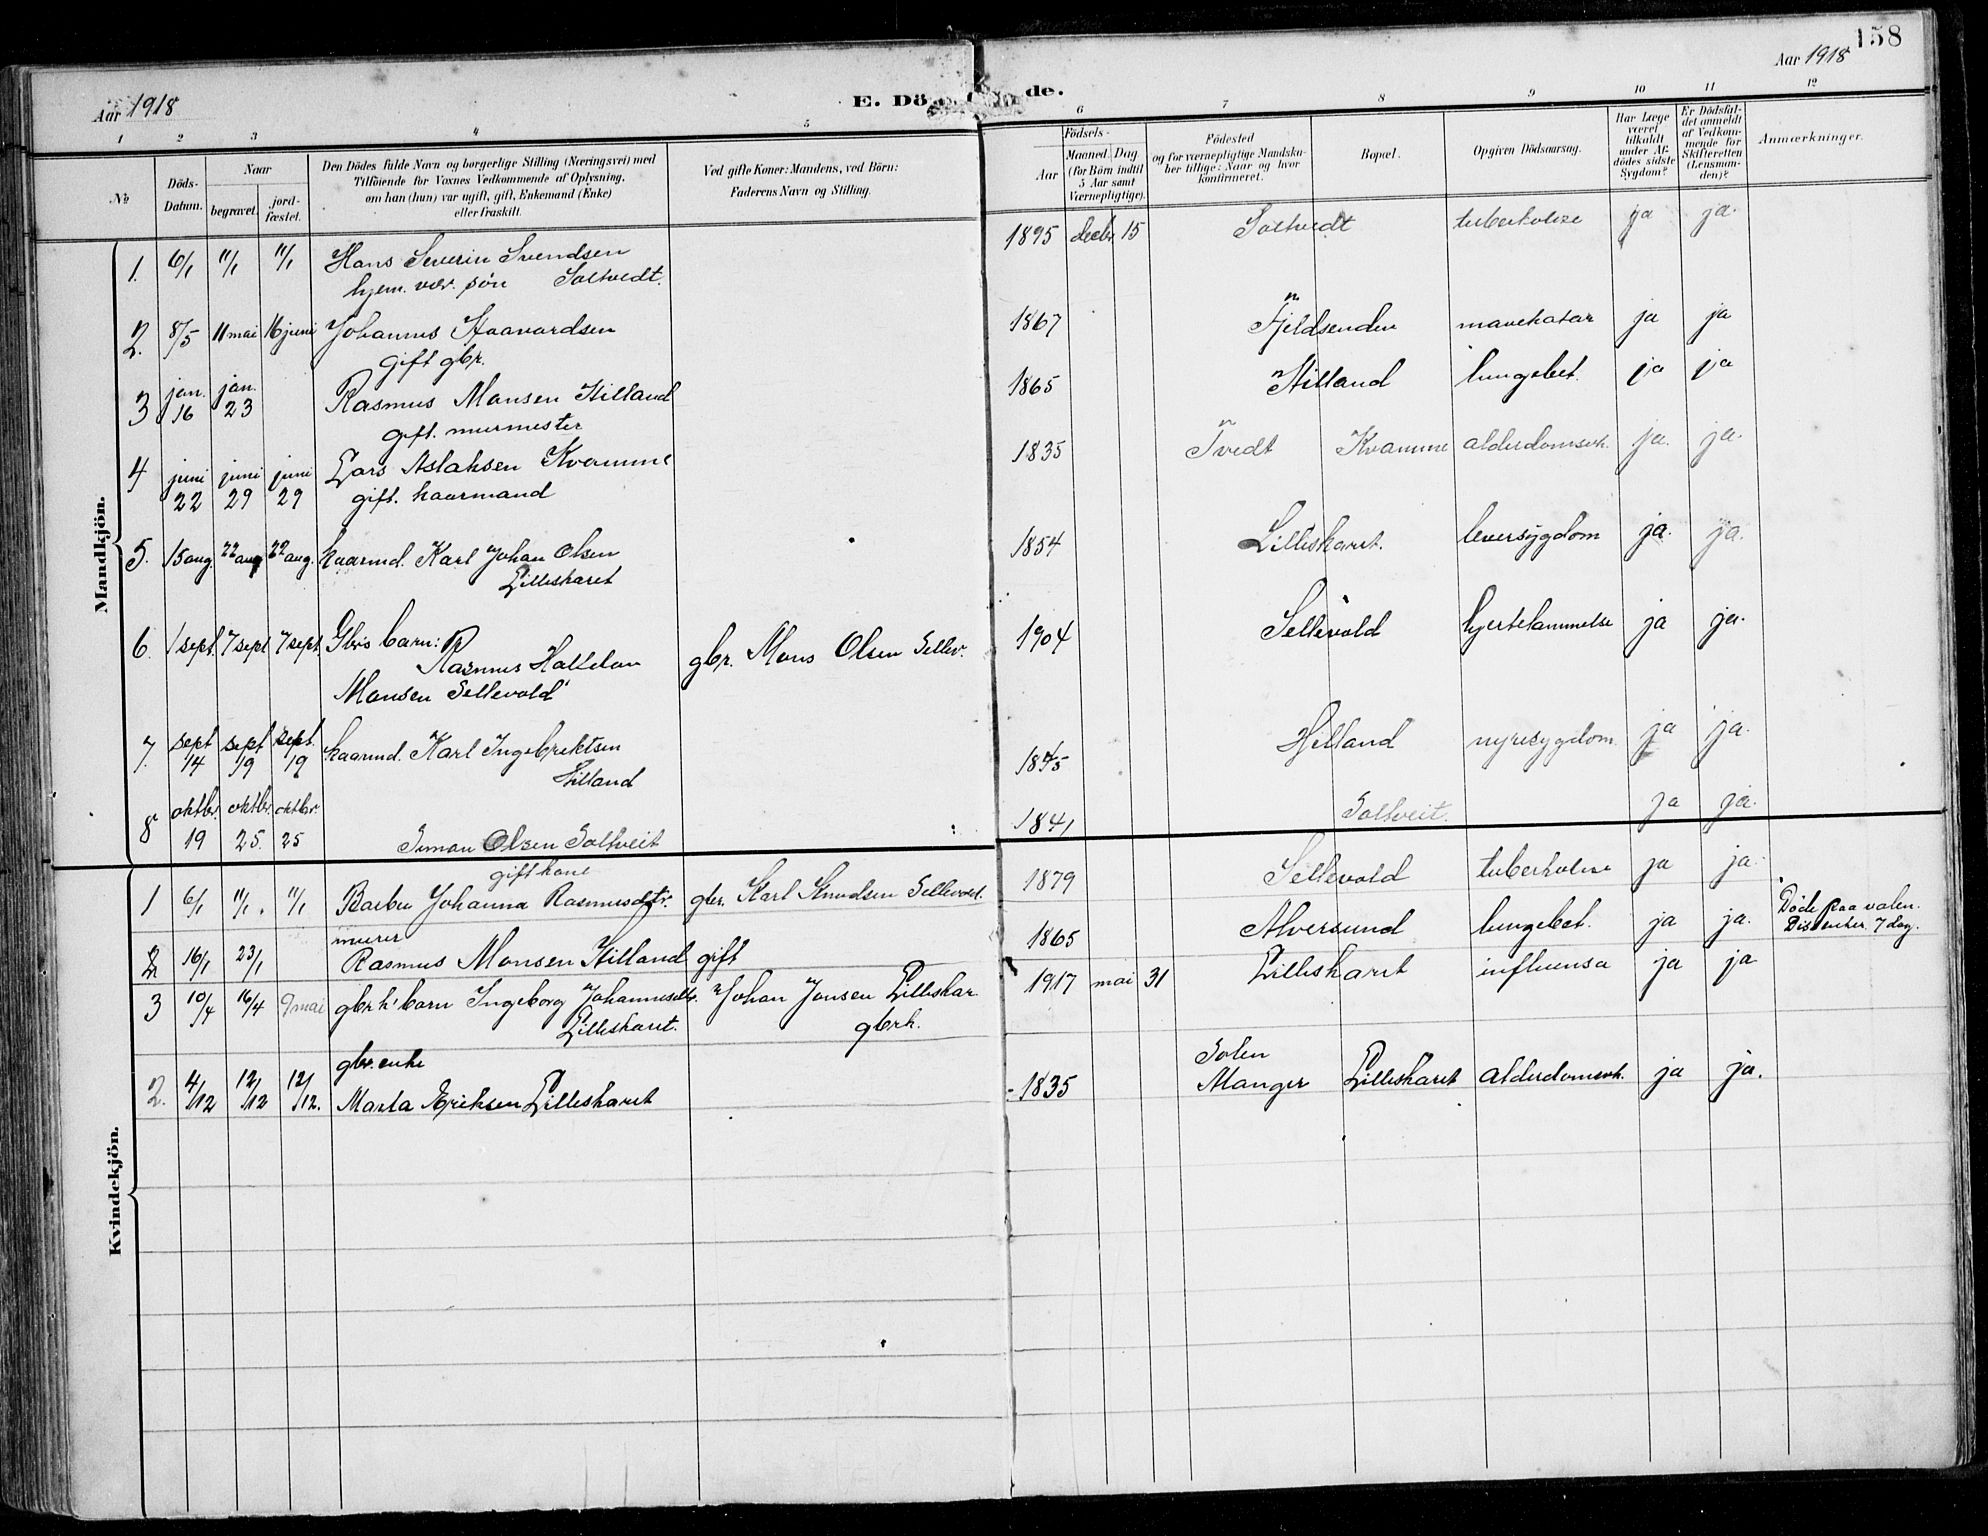 158
Aar 1918
Aar 1918
E. Dö de.
1 2 3 4 5 6 7 8 9 10 11 12
No
Döds-Datum.
Naar
begravet.
jord-fæstet.
Den Dödes fulde Navn og borgerlige Stilling (Næringsvei) med
Tilföiende for Voxnes Vedkommende af Oplysning,
om han (hun) var ugift, gift, Enkemand (Enke)
eller fraskilt.
Ved gifte Koner: Mandens, ved Börn:
Faderens Navn og Stilling.
Födsels-
Aar
Maaned. Dag.
(for Börn indtil
5 Aar samt
Værnepligtige).
Födested
og for værnepligtige Mandska-
ber tillige: Naar og hvor
konfirmeret.
Bopæl.
Opgiven Dödsaarsag.
Har Læge
været
tilkaldt
under Af-
dödes sidste
Sygdom?
Er Dödsfal-
det anmeldt
af Vedkom-
mende for
Skifteretten
(Lensman-
den)?
Anmærkninger.
Mandkjön.
1. 6/1 11/1 11/1 Hans Severin Svendsen 1895 decbr. 15 Soltvedt tuberkolose ja ja.
hjem. vær. søn Soltvedt.
2. 8/5 11 mai 16 juni Johannes Haavardsen 1867 Fjeldsenden mavekatar ja ja
gift gbr.
3 jan. 16 jan. 23 Rasmus Monsen Hilland 1865 Hilland lungebet. ja ja
gift. murmester
4 juni 22 juni 29 juni 29 Lars Aslaksen Kvamme 1835 Tvedt Kvamme alderdomsvk. ja. ja.
gift. kaarmand
5. 15 aug 22 aug 22 aug. kaarmd. Karl Johan Olsen 1854 Lilleskaret. leversygdom ja. ja.
Lilleskaret
6. 1 sept. 7 sept 7 sept. Gbrs barn: gbr. Mons Olsen Sellev. 1904 Sellevold hjertelammelse ja ja.
Rasmus
Monsen Sellevold
7. sept 14 sept 19 sept. 19 kaarmd. Karl Ingebrektsen Hilland nyresygdom. ja ja.
Hilland
8 oktbr. 19 oktbr. 25. oktbr. 25 Simon Olsen Soltveit 1841 Soltveit. ja ja.
Kvindekjön.
gift kone
1 6/1 11/1. 11/1 Barbu Johanna Rasmusdtr. gbr. Karl Knudsen Sellevold. 1879 Sellevold tuberkolose ja ja.
murer
2 16/1 23/1 Rasmus Monsen Hilland gift 1865 Alversund lungebet. ja ja. Døde paa
7 dag.
3 10/4 16/4 9 mai gbrk' barn Ingeborg Johannesdtr. Johan Jonsen Lilleskar 1917 mai 31 Lilleskaret influensa ja ja
Lilleskaret. gbrk.
gbr. enke
2. 4/12 12/12 12/12. Marta Eriksen Lilleskaret 1835 Manger Lilleskaret alderdomsvk. ja ja.